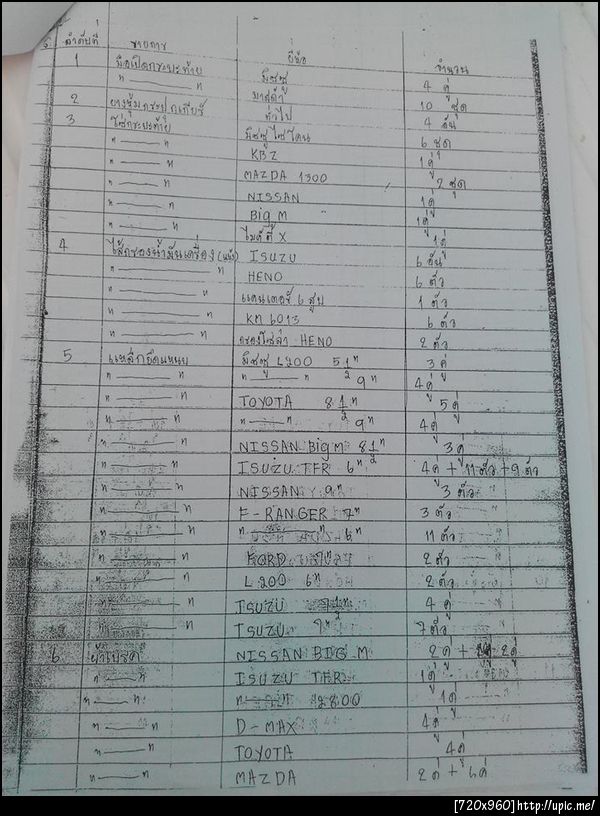 ลำดับที่ รายการ ยี่ห้อ จำนวน
1 มือเปิดกระบะท้าย มิตซู 4 คู่
" — " มาสด้า 10 ชุด
2 ยางหุ้มกระปุกเกียร์ ทั่วไป 4 อัน
3 โซ่กระบะท้าย มิตซูไซโคลน 6 ชุด
" — " KBZ 1 คู่
" — " MAZDA 1300 2 ชุด
" — " NISSAN 1 คู่
" — " Big M 1 คู่
" — " ไมตี้ X 1 คู่
4 ไส้กรองน้ำมันเครื่อง ISUZU 6 อัน
" — " HENO 6 ตัว
" — " แคนเตอร์ 6 สูบ 1 ตัว
" — " KM 6013 6 ตัว
" — " กรองโซล่า HENO 2 ตัว
5 เหล็กยึดแหนบ มิตซู L200 5 1/2" 3 คู่
" — " " — " 9" 4 คู่
" — " TOYOTA 8 1/2" 5 คู่
" — " " — " 9" 4 คู่
" — " NISSAN Big M 8 1/2" 3 คู่
" — " ISUZU TFR 6" 4 คู่ + 11 ตัว + 9 ตัว
" — " NISSAN 9" 3 ตัว
" — " F-RANGER 7" 3 ตัว
" — " " — " 6" 11 ตัว
" — " FORD 2 ตัว
" — " L200 6" 2 ตัว
" — " ISUZU 4 คู่
" — " ISUZU 7 ตัว
6 ผ้าเบรค NISSAN BIG M 2 คู่ + 2 คู่
" — " ISUZU TFR 1 คู่
" — " " — " 2800 1 คู่
" — " D-MAX 4 คู่
" — " TOYOTA 4 คู่
" — " MAZDA 2 คู่ + 6 คู่
[720x960] http://upic.me/